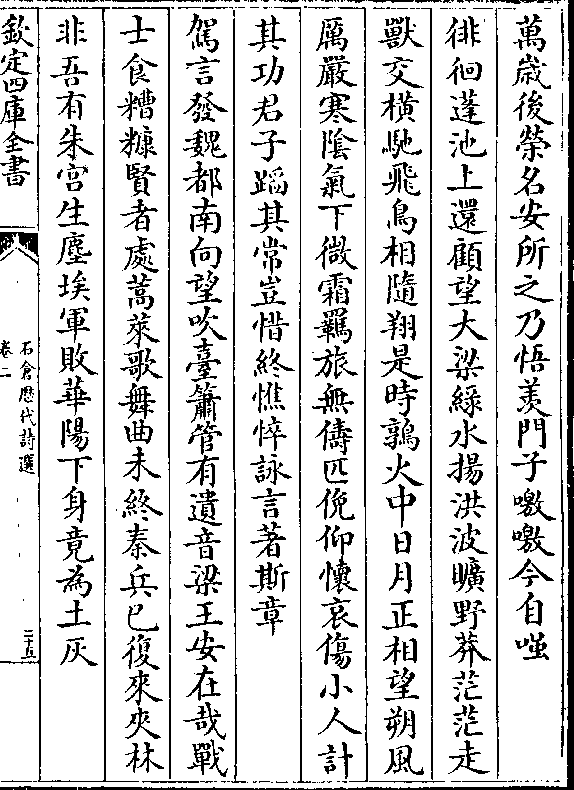 萬歲後榮名安所之乃悟羨門子噭噭今自嗤
徘徊蓬池上還顧望大梁綠水揚洪波曠野莽茫茫走
獸交橫馳飛鳥相隨翔是時鶉火中日月正相望朔風
厲嚴寒陰氣下微霜羈旅無儔匹俛仰懷哀傷小人計
其功君子蹈其常豈惜終憔悴詠言著斯章
駕言發魏都南向望吹臺簫管有遺音梁王安在哉戰
士食糟糠賢者處蒿萊歌舞曲未終秦兵已復來夾林
非吾有朱宮生塵埃軍敗華陽下身竟為土灰
欽定四庫全書
石倉歷代詩選
卷二
二十五